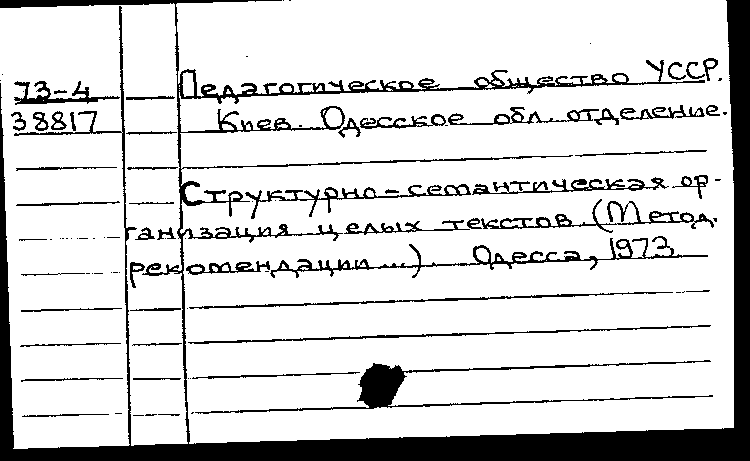 73-4 Педагогическое общество УССР.
38817 Киев. Одесское обл. отделение.
Структурно-семантическая ор-
ганизация целых текстов. (Метод.
рекомендации...). Одесса, 1973